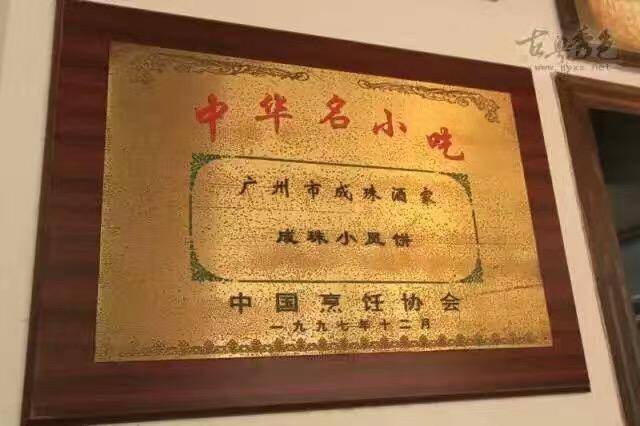 中华名小吃
广州市成珠酒家
成珠小凤饼
中国烹饪协会
一九九七年十二月